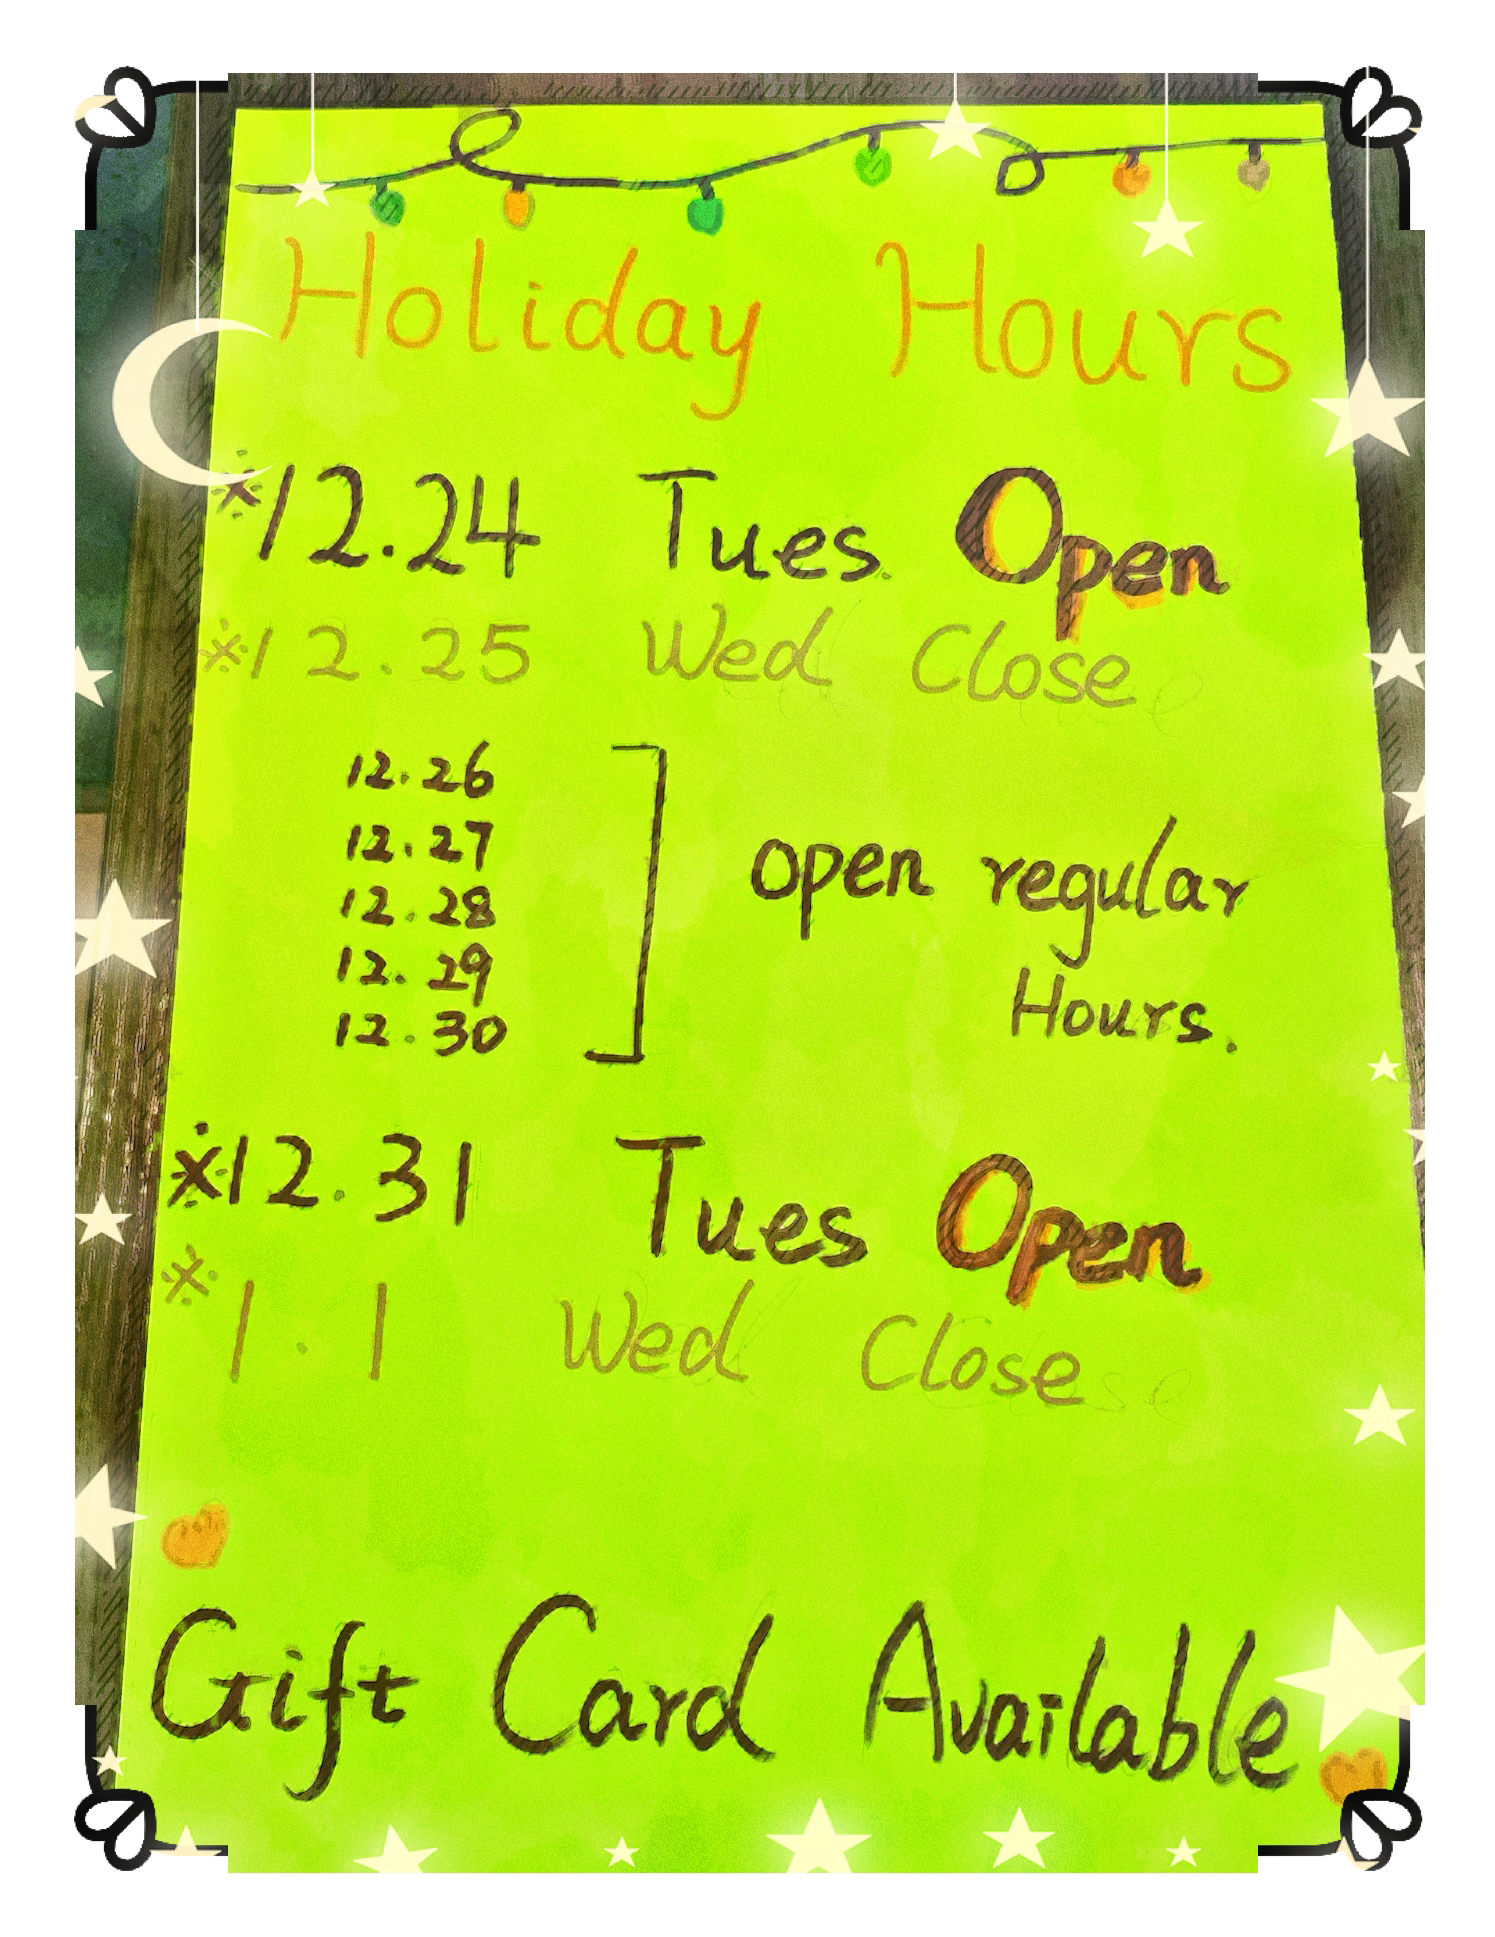 Holiday Hours
※12.24 Tues. Open
※12.25 Wed Close
12.26
12.27
12.28
12.29
12.30
open regular
Hours.
※12.31 Tues Open
※1.1 Wed Close
Gift Card Available